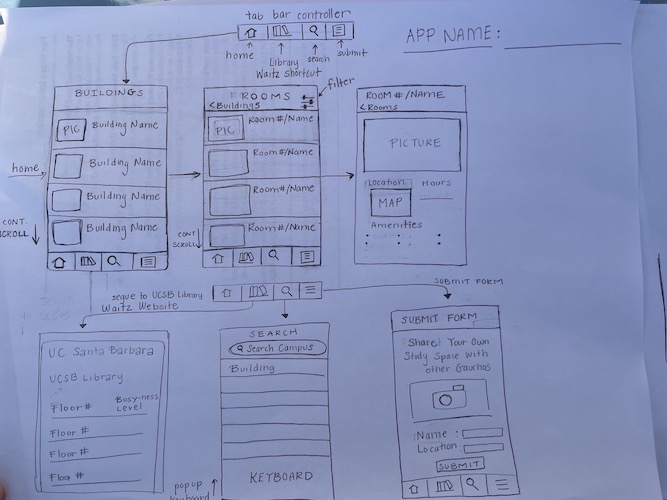 tab bar controller
home
Library
Waitz shortcut
search
submit
APP NAME:
filter
BUILDINGS
PIC Building Name
Building Name
Building Name
Building Name
home
CONT.
SCROLL
ROOMS
<Buildings
PIC Room#/Name
Room#/Name
Room#/Name
Room#/Name
CONT
SCROLL
ROOM#/NAME
<Rooms
PICTURE
Location Hours
MAP
Amenities
segue to UCSB Library
Waitz Website
SUBMIT FORM
UC Santa Barbara
UCSB Library
Floor # Busy-ness
Level
Floor #
Floor #
Floor #
SEARCH
Search Campus
Building
KEYBOARD
popup
keyboard
SUBMIT FORM
Share! Your Own
Study Space with
other Gauchos
Name:
Location:
SUBMIT